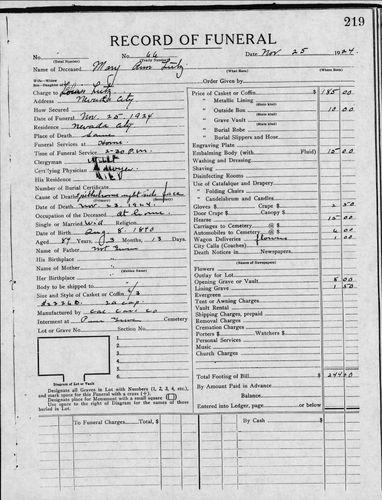 219
RECORD OF FUNERAL
No. No. 66 Date Nov. 25 1924
(Total Number) (Yearly Number)
Name of Deceased Mary Ann Lutz
(What Name) (Where Born)
Order Given by
Charge to Louis Lutz
Address Nevada City
How Secured
Date of Funeral Nov. 25 1924
Residence Nevada City
Place of Death Same
Funeral Services at Home
Time of Funeral Service 2-30 P.M.
Clergyman
Certifying Physician
His Residence
Number of Burial Certificate
Cause of Death Epithelioma right side face
Date of Death Nov 23 1924
Occupation of the Deceased at home
Single or Married Wid Religion
Date of Birth Aug. 8. 1840
Aged Years, 3 Months, 13 Days
Name of Father not Given
His Birthplace
Name of Mother
Her Birthplace
Body to be shipped to
Size and Style of Casket or Coffin 6/3
Manufactured by Cal Cas. Co
Interment at Pine Grove Cemetery
Lot or Grave No. Section No.
1
2
3
4
5
6
Diagram of Lot or Vault
Designate all Graves in Lot with Numbers (1, 2, 3, 4, etc.),
and mark space for this Funeral with a cross (+).
Designate place for Monument with a small square
Use space to the right of Diagram for the names of those
buried in Lot.
Price of Casket or Coffin $ 185 00
" Metallic Lining
" Outside Box 10 00
" Grave Vault
" Burial Robe
" Burial Slippers and Hose
Engraving Plate
Embalming Body (with Fluid) 15 00
Washing and Dressing
Shaving
Disinfecting Rooms
Use of Catafalque and Drapery
" Folding Chairs
" Candelabrum and Candles
Gloves $ Door Crape $ Canopy $ 2 50
Hearse 15 00
Carriages to Cemetery @ $
Automobiles to Cemetery @ $ 6 00
Wagon Deliveries flowers 1 00
City Calls (Coaches)
Death Notices in Newspapers
(Names of Newspapers)
Flowers
Outlay for Lot
Opening Grave or Vault 8 00
Lining Grave 1 50
Evergreen
Tent or Awning Charges
Vault Rental
Shipping Charges, prepaid
Removal Charges
Cremation Charges
Porters $ Watchers $
Personal Services
Music
Church Charges
Total Footing of Bill $ 244 00
By Amount Paid in Advance
Balance
Entered into Ledger, page or below
To Funeral Charges, Total $ By Cash $